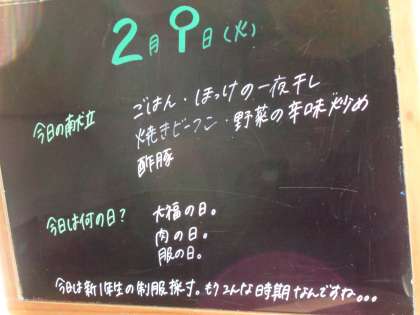 2月9日(火)
今日の献立
ごはん・ほっけの一夜干し
焼きビーフン・野菜の辛味炒め
酢豚
今日は何の日?
大福の日。
肉の日。
服の日。
今日は新1年生の制服採寸。もうこんな時期なんですね。。。